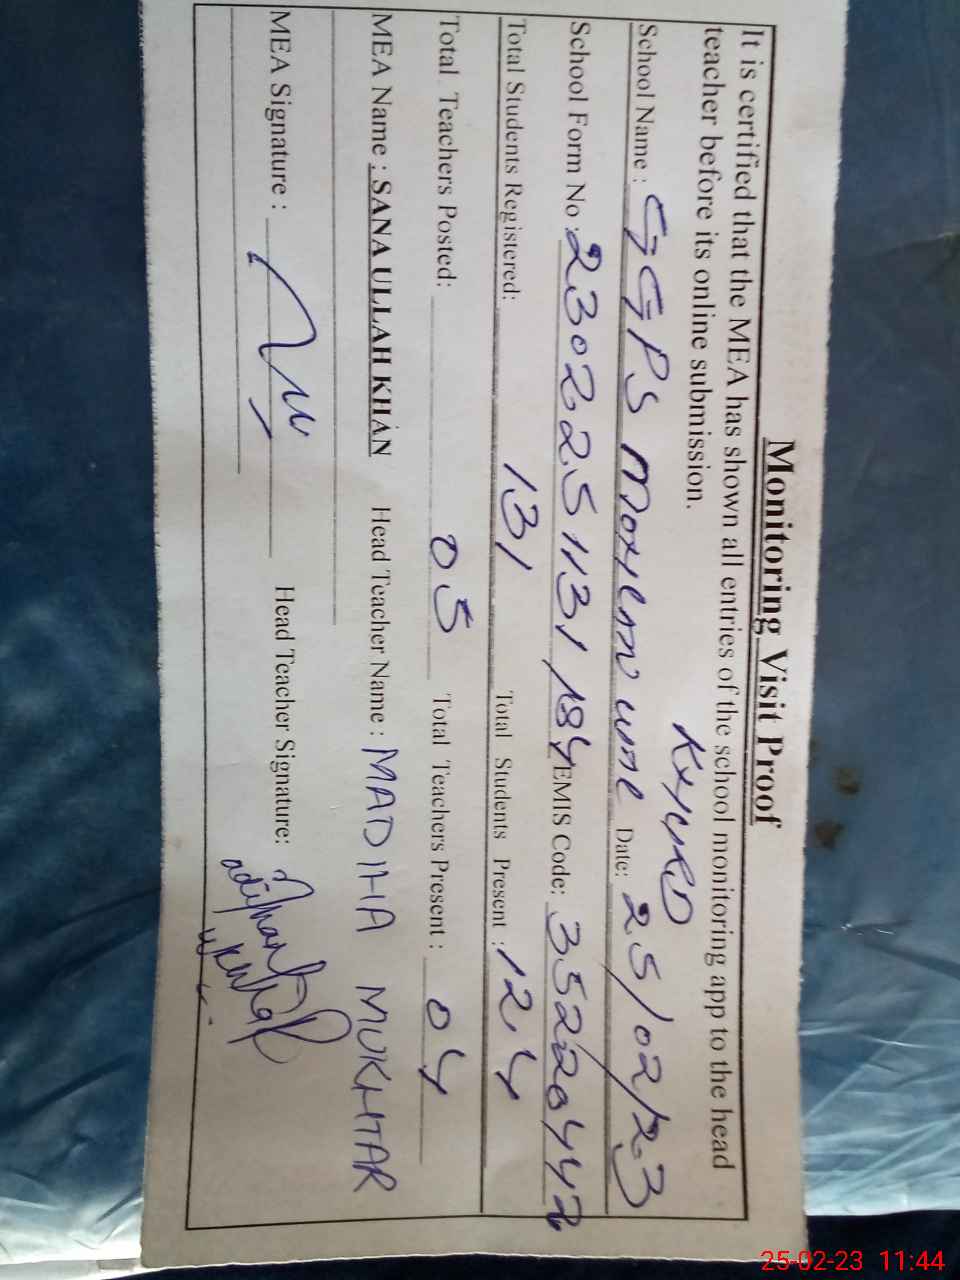 Monitoring Visit Proof
It is certified that the MEA has shown all entries of the school monitoring app to the head
teacher before its online submission.
School Name : GGPS Date: 25/02/23
School Form No : 2302251131184 EMIS Code: 35220442
Total Students Registered: 131 Total Students Present : 124
Total Teachers Posted: 05 Total Teachers Present : 04
MEA Name : SANA ULLAH KHAN Head Teacher Name : MADIHA MUKHTAR
MEA Signature : Head Teacher Signature:
25-02-23 11:44